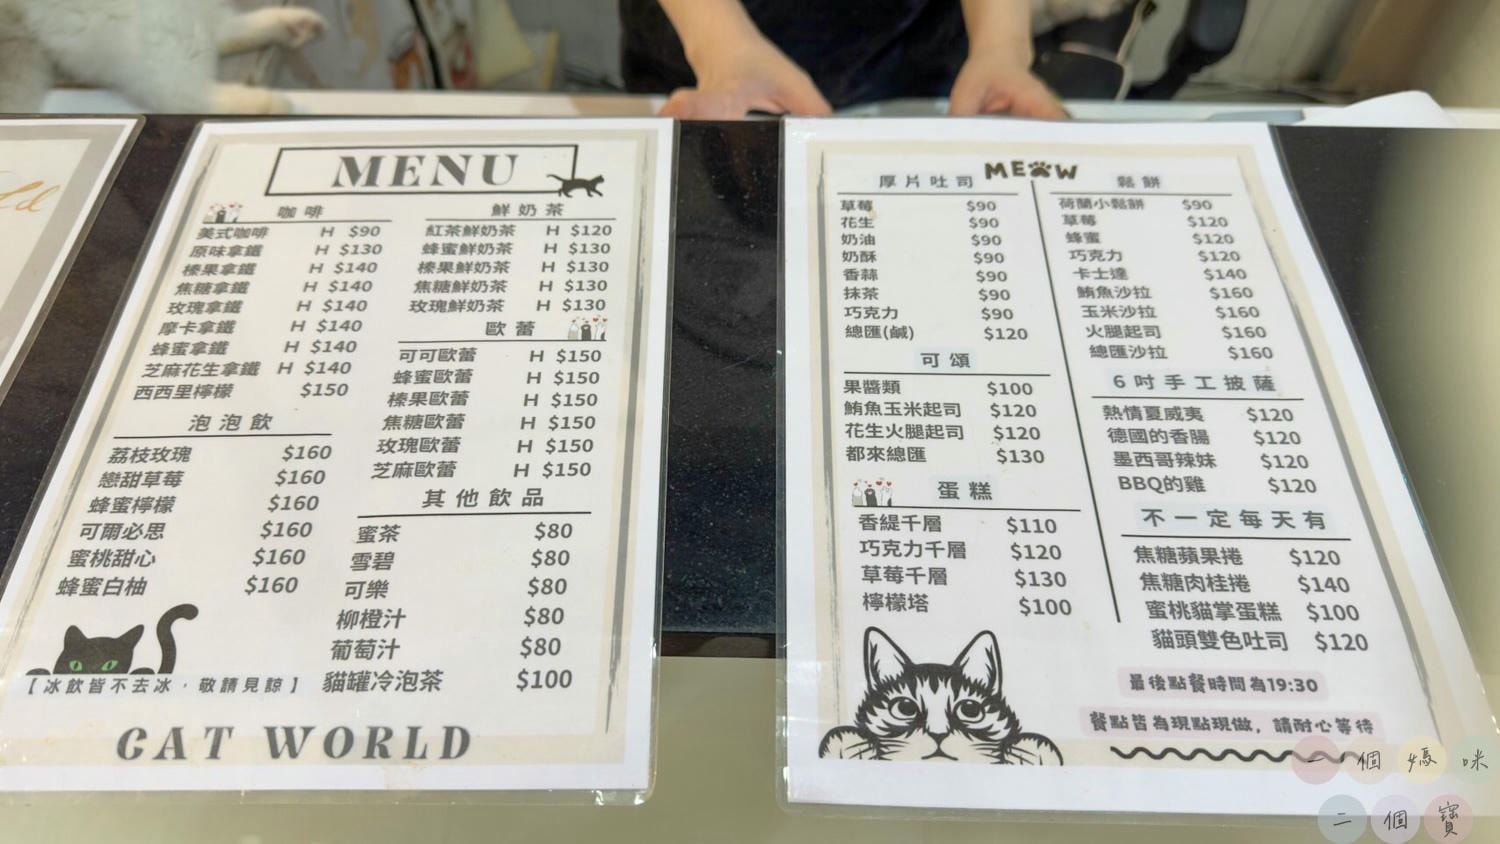 MENU
咖啡
美式咖啡 H $90
原味拿鐵 H $130
榛果拿鐵 H $140
焦糖拿鐵 H $140
玫瑰拿鐵 H $140
摩卡拿鐵 H $140
蜂蜜拿鐵 H $140
芝麻花生拿鐵 H $140
西西里檸檬 $150
泡泡飲
荔枝玫瑰 $160
戀甜草莓 $160
蜂蜜檸檬 $160
可爾必思 $160
蜜桃甜心 $160
蜂蜜白柚 $160
【冰飲皆不去冰，敬請見諒】
鮮奶茶
紅茶鮮奶茶 H $120
蜂蜜鮮奶茶 H $130
榛果鮮奶茶 H $130
焦糖鮮奶茶 H $130
玫瑰鮮奶茶 H $130
歐蕾
可可歐蕾 H $150
蜂蜜歐蕾 H $150
榛果歐蕾 H $150
焦糖歐蕾 H $150
玫瑰歐蕾 H $150
芝麻歐蕾 H $150
其他飲品
蜜茶 $80
雪碧 $80
可樂 $80
柳橙汁 $80
葡萄汁 $80
貓罐冷泡茶 $100
CAT WORLD
MEOW
厚片吐司
草莓 $90
花生 $90
奶油 $90
奶酥 $90
香蒜 $90
抹茶 $90
巧克力 $90
總匯(鹹) $120
可頌
果醬類 $100
鮪魚玉米起司 $120
花生火腿起司 $120
都來總匯 $130
蛋糕
香緹千層 $110
巧克力千層 $120
草莓千層 $130
檸檬塔 $100
鬆餅
荷蘭小鬆餅 $90
草莓 $120
蜂蜜 $120
巧克力 $120
卡士達 $140
鮪魚沙拉 $160
玉米沙拉 $160
火腿起司 $160
總匯沙拉 $160
6吋手工披薩
熱情夏威夷 $120
德國的香腸 $120
墨西哥辣妹 $120
BBQ的雞 $120
不一定每天有
焦糖蘋果捲 $120
焦糖肉桂捲 $140
蜜桃貓掌蛋糕 $100
貓頭雙色吐司 $120
最後點餐時間為19:30
餐點皆為現點現做，請耐心等待
一個媽咪
二個寶